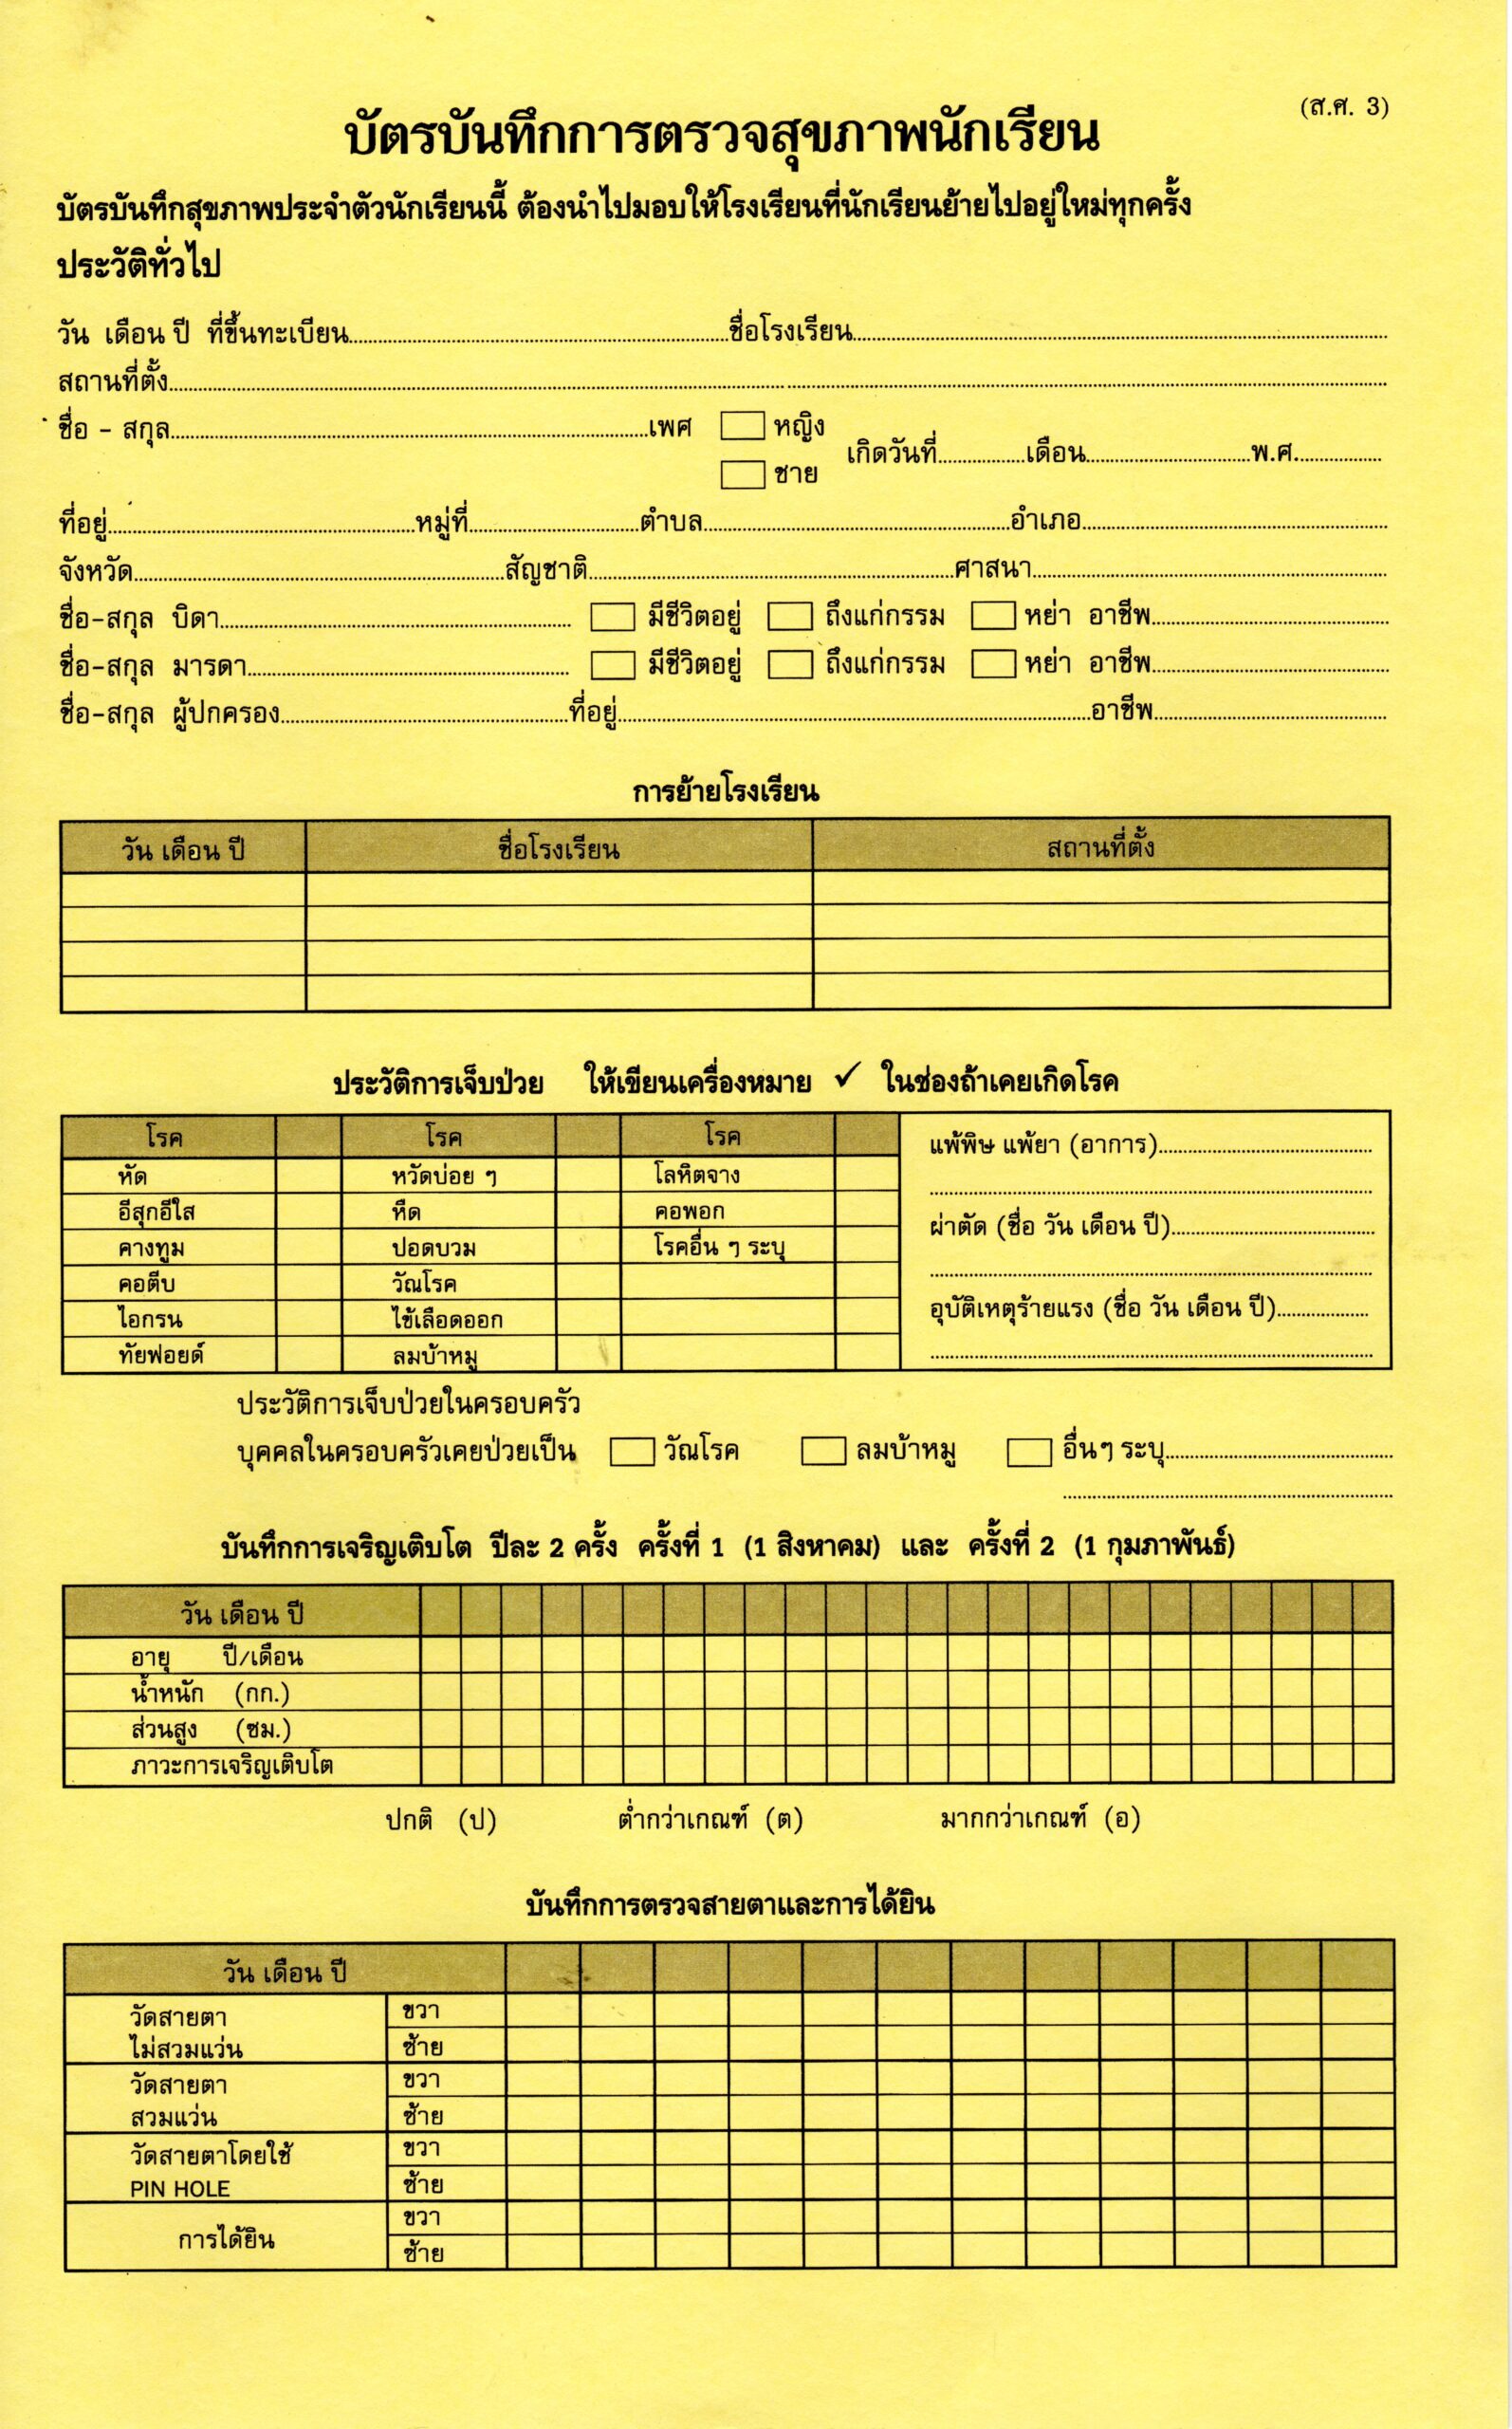 (ส.ศ. 3)
บัตรบันทึกการตรวจสุขภาพนักเรียน
บัตรบันทึกสุขภาพประจำตัวนักเรียนนี้ ต้องนำไปมอบให้โรงเรียนที่นักเรียนย้ายไปอยู่ใหม่ทุกครั้ง
ประวัติทั่วไป
วัน เดือน ปี ที่ขึ้นทะเบียน..........ชื่อโรงเรียน..........
สถานที่ตั้ง..........
ชื่อ - สกุล..........เพศ หญิง
ชาย เกิดวันที่..........เดือน..........พ.ศ..........
ที่อยู่..........หมู่ที่..........ตำบล..........อำเภอ..........
จังหวัด..........สัญชาติ..........ศาสนา..........
ชื่อ-สกุล บิดา.......... มีชีวิตอยู่ ถึงแก่กรรม หย่า อาชีพ..........
ชื่อ-สกุล มารดา.......... มีชีวิตอยู่ ถึงแก่กรรม หย่า อาชีพ..........
ชื่อ-สกุล ผู้ปกครอง..........ที่อยู่..........อาชีพ..........
การย้ายโรงเรียน
วัน เดือน ปี ชื่อโรงเรียน สถานที่ตั้ง
ประวัติการเจ็บป่วย ให้เขียนเครื่องหมาย ✓ ในช่องถ้าเคยเกิดโรค
โรค โรค โรค
หัด หวัดบ่อย ๆ โลหิตจาง
อีสุกอีใส หืด คอพอก
คางทูม ปอดบวม โรคอื่น ๆ ระบุ
คอตีบ วัณโรค
ไอกรน ไข้เลือดออก
ทัยฟอยด์ ลมบ้าหมู
แพ้พิษ แพ้ยา (อาการ)..........
ผ่าตัด (ชื่อ วัน เดือน ปี)..........
อุบัติเหตุร้ายแรง (ชื่อ วัน เดือน ปี)..........
ประวัติการเจ็บป่วยในครอบครัว
บุคคลในครอบครัวเคยป่วยเป็น วัณโรค ลมบ้าหมู อื่นๆ ระบุ..........
บันทึกการเจริญเติบโต ปีละ 2 ครั้ง ครั้งที่ 1 (1 สิงหาคม) และ ครั้งที่ 2 (1 กุมภาพันธ์)
วัน เดือน ปี
อายุ ปี/เดือน
น้ำหนัก (กก.)
ส่วนสูง (ซม.)
ภาวะการเจริญเติบโต
ปกติ (ป) ต่ำกว่าเกณฑ์ (ต) มากกว่าเกณฑ์ (อ)
บันทึกการตรวจสายตาและการได้ยิน
วัน เดือน ปี
วัดสายตา ขวา
ไม่สวมแว่น ซ้าย
วัดสายตา ขวา
สวมแว่น ซ้าย
วัดสายตาโดยใช้ ขวา
PIN HOLE ซ้าย
การได้ยิน ขวา
ซ้าย